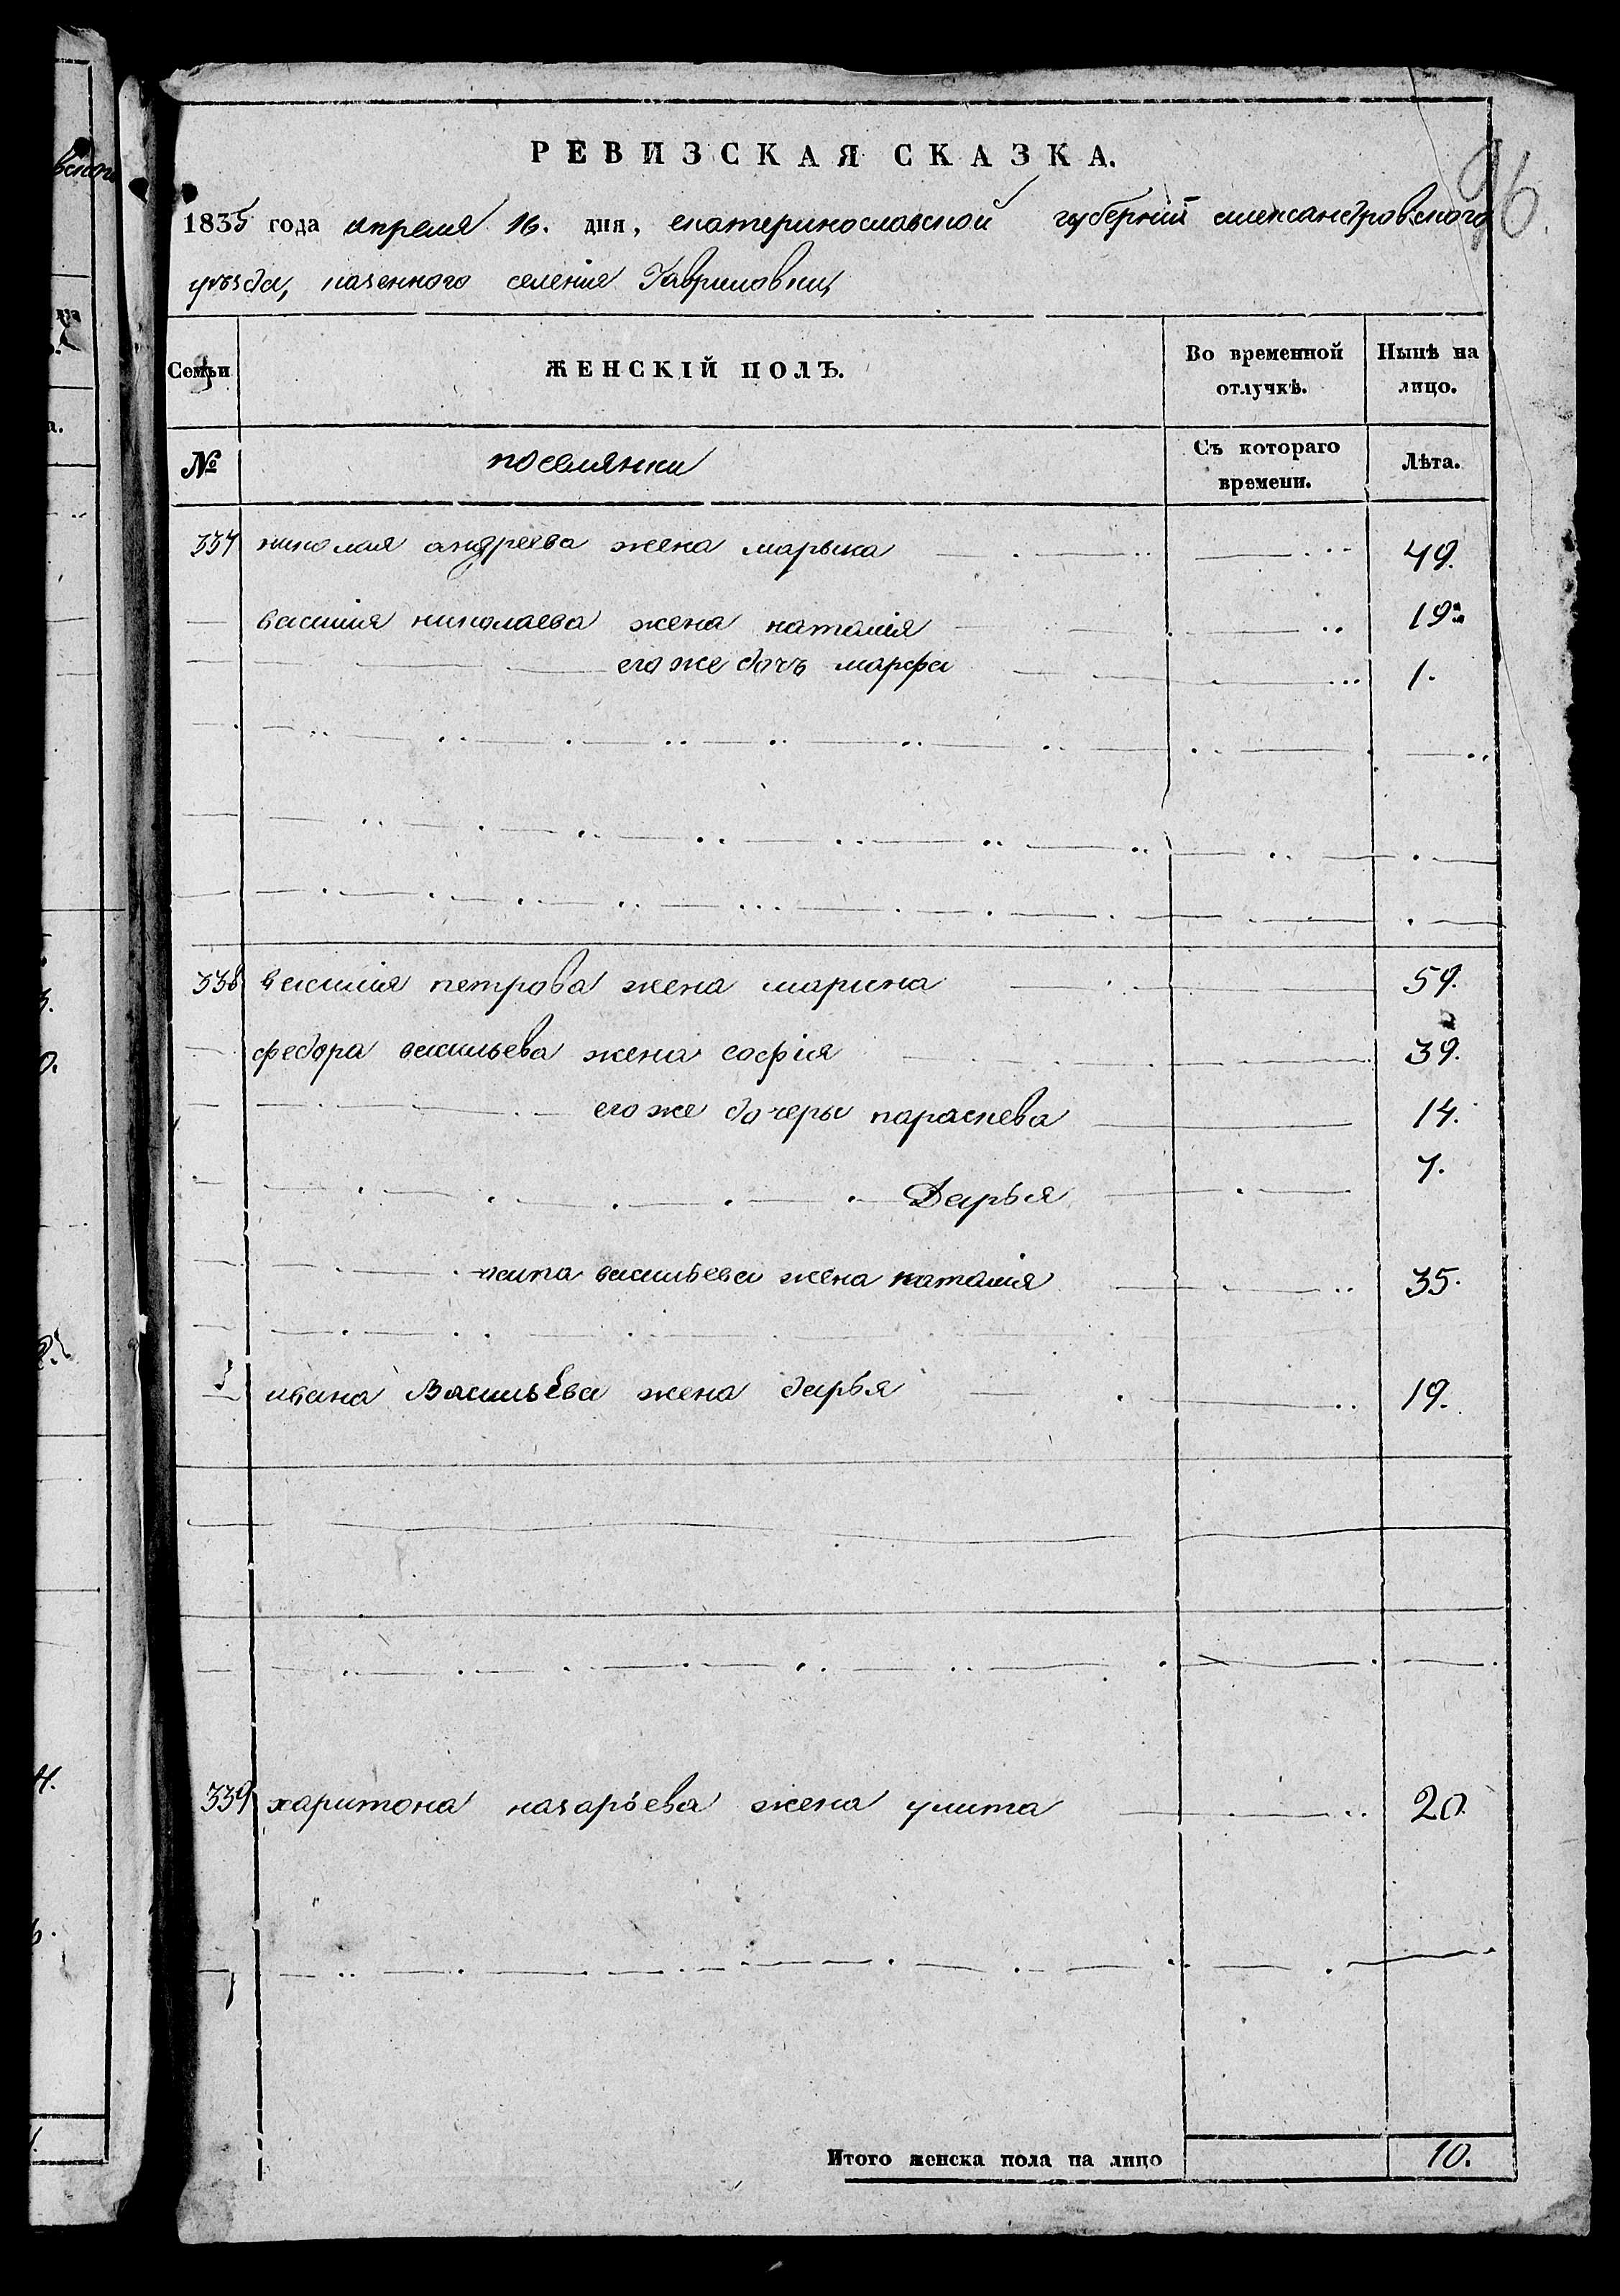 96.
РЕВИЗСКАЯ СКАЗКА.
1835 года апреля 16. дня, екатеринославской губерніи александровского
уѣзда, казенного селенія Гавриловки
Семьи
ЖЕНСКІЙ ПОЛЪ.
Во временной отлучкѣ.
Нынѣ на лицо.
№
поселянки
Съ котораго времени.
Лѣта.
337 николая андреева жена марьика 49.
василія николаева жена наталія 19.
его же дочь марфа 1.
338 василія петрова жена марина 59.
федора васильева жена софія 39.
его же дочеры параскева 14.
Дарья 7.
осипа васильева жена наталія 35.
ивана Васильева жена дарья 19.
339 харитона назарьева жена улита 20.
Итого женска пола на лицо 10.